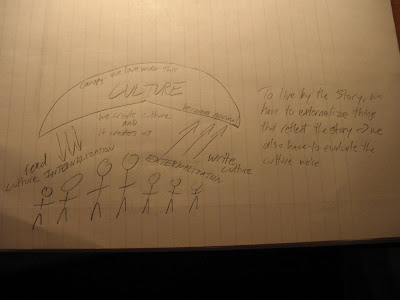 Canopy we live under this
CULTURE
we create culture
AND
it creates us
becomes
read
culture INTERNALIZATION
EXTERNALIZATION
write
culture
To live by the Story, we
have to externalize things
that reflect the story → we
also have to evaluate the
culture we're